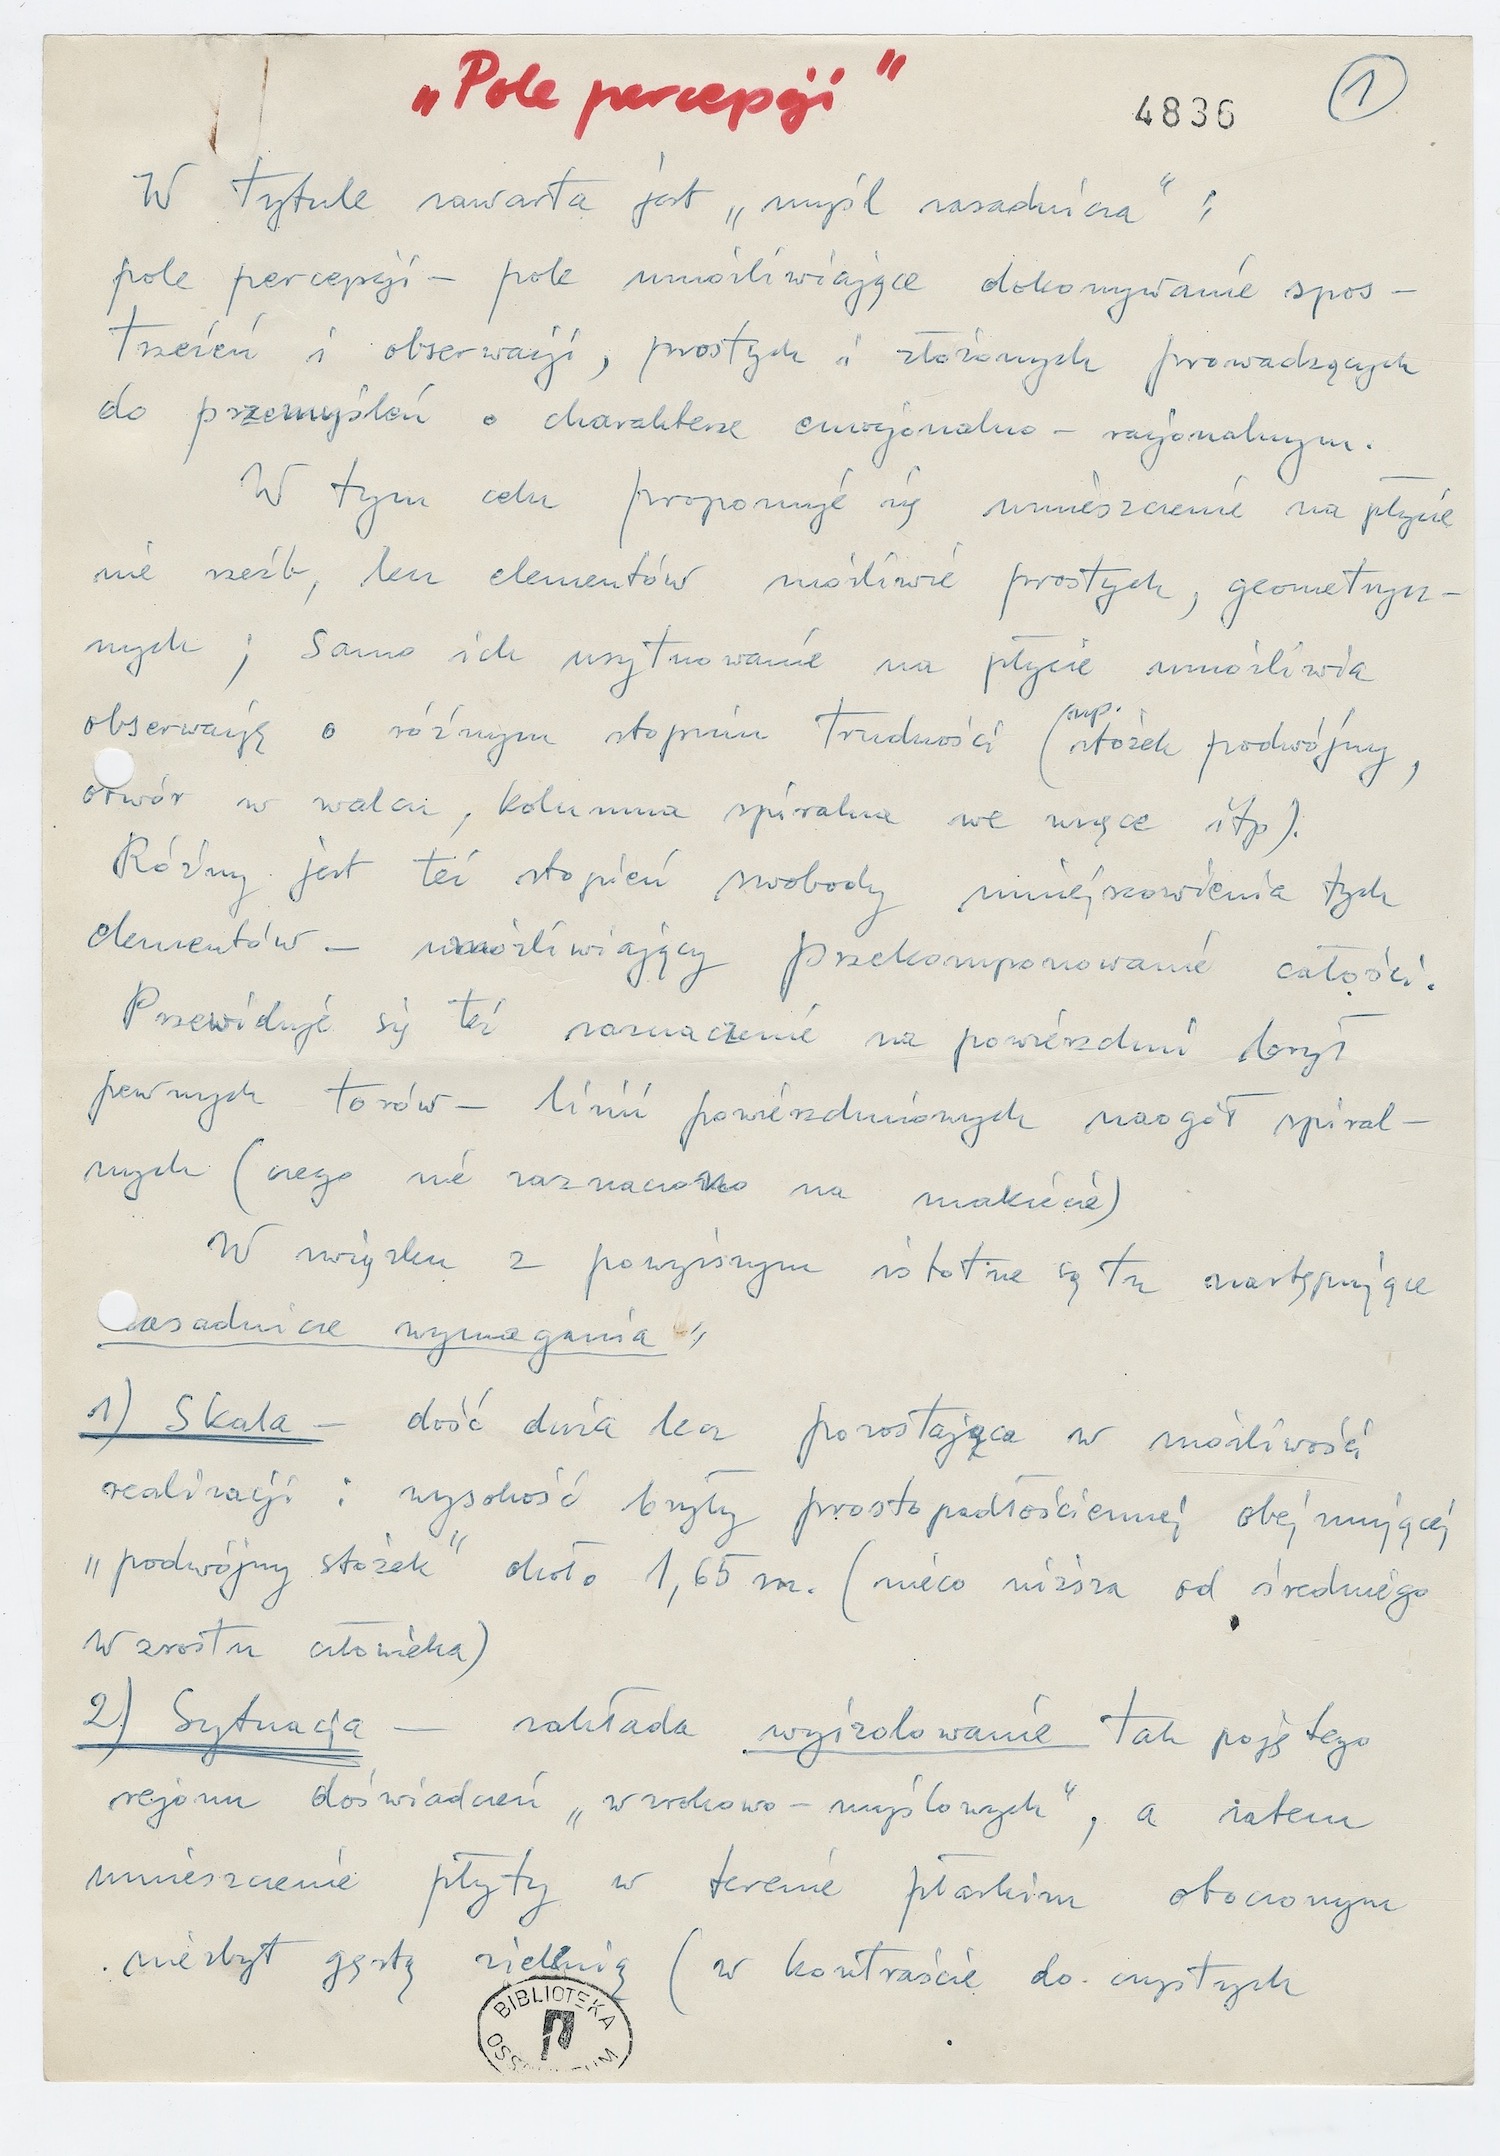 „Pole percepcji"
4836
1
W tytule zawarta jest „myśl zasadnicza":
pole percepcji – pole umożliwiające dokonywanie spos–
trzeżeń i obserwacji, prostych i złożonych prowadzących
do przemyśleń o charakterze emocjonalno – racjonalnym.
W tym celu proponuje się umieszczenie na płycie
nie rzeźb, lecz elementów możliwie prostych, geometrycz–
nych; samo ich usytuowanie na płycie umożliwia
obserwację o różnym stopniu trudności (np. stożek podwójny,
otwór w walcu, kolumna spiralna we wnęce itp).
Różny jest też stopień swobody umiejscowienia tych
elementów – umożliwiający przekomponowanie całości.
Przewiduje się też zaznaczenie na powierzchni brył
pewnych torów – linii powierzchniowych naogół spiral–
nych (czego nie zaznaczono na makiecie)
W związku z powyższym istotne są tu następujące
zasadnicze wymagania"
1) Skala – dość duża lecz pozostająca w możliwości
realizacji: wysokość bryły prostopadłościennej obejmującej
„podwójny stożek" około 1,65 m. (nieco niższa od średniego
wzrostu człowieka)
2) Sytuacja – zakłada wyizolowanie tak pojętego
rejonu doświadczeń „wzrokowo – myślowych", a zatem
umieszczenie płyty w terenie płaskim otoczonym
niezbyt gęstą zielenią (w kontraście do czystych
BIBLIOTEKA